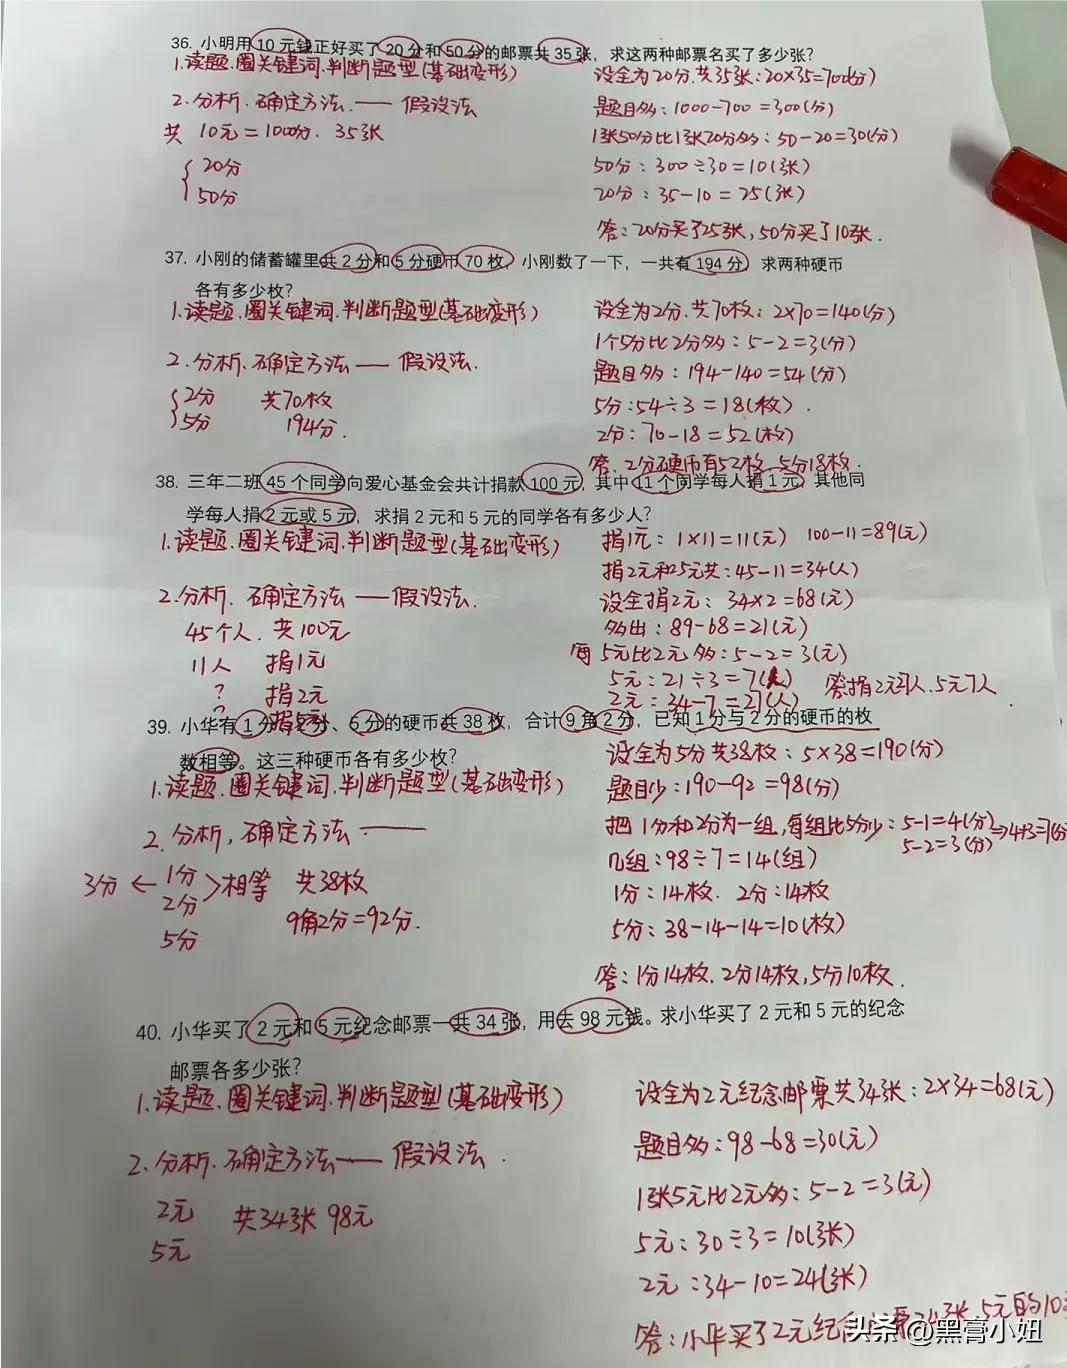 36. 小明用 10 元钱正好买了 20 分和 50 分的邮票共 35 张，求这两种邮票名买了多少张？
1.读题.圈关键词.判断题型(基础变形)
2.分析.确定方法 —— 假设法
共 10元=1000分. 35张
20分
50分
设全为20分.共35张:20×35=700(分)
题目多:1000-700=300(分)
1张50分比1张20分多:50-20=30(分)
50分:300÷30=10(张)
20分:35-10=25(张)
答:20分买了25张,50分买了10张.
37. 小刚的储蓄罐里共 2 分和 5 分硬币 70 枚，小刚数了一下，一共有 194 分，求两种硬币
各有多少枚？
1.读题.圈关键词.判断题型(基础变形)
2.分析.确定方法 —— 假设法.
2分 共70枚
5分 194分.
设全为2分.共70枚:2×70=140(分)
1个5分比2分多:5-2=3(分)
题目多:194-140=54(分)
5分:54÷3=18(枚).
2分:70-18=52(枚)
答.2分硬币有52枚.5分18枚.
38. 三年二班 45 个同学向爱心基金会共计捐款 100 元，其中 11 个同学每人捐 1 元，其他同
学每人捐 2 元或 5 元，求捐 2 元和 5 元的同学各有多少人？
1.读题.圈关键词.判断题型(基础变形)
2.分析.确定方法 —— 假设法.
45个人.共100元
11人 捐1元
? 捐2元
?
捐1元:1×11=11(元) 100-11=89(元)
捐2元和5元共:45-11=34(人)
设全捐2元:34×2=68(元)
多出:89-68=21(元)
每5元比2元多:5-2=3(元)
5元:21÷3=7(人)
2元:34-7=27(人)
答捐2元27人.5元7人
39. 小华有 1 分、2 分、5 分的硬币共 38 枚，合计 9 角 2 分，已知 1 分与 2 分的硬币的枚
数相等。这三种硬币各有多少枚？
1.读题.圈关键词.判断题型(基础变形)
2.分析,确定方法 ——
3分 ← 1分
2分 >相等 共38枚
5分 9角2分=92分.
设全为5分共38枚:5×38=190(分)
题目少:190-92=98(分)
把1分和2分为一组,每组比5分少:5-1=4(分)
5-2=3(分) ⇒4+3=7(分
几组:98÷7=14(组)
1分:14枚. 2分:14枚
5分:38-14-14=10(枚)
答:1分14枚.2分14枚,5分10枚.
40. 小华买了 2 元和 5 元纪念邮票一共 34 张，用去 98 元钱。求小华买了 2 元和 5 元的纪念
邮票各多少张？
1.读题.圈关键词.判断题型(基础变形)
2.分析.确定方法 —— 假设法.
2元 共34张 98元
5元
设全为2元纪念邮票共34张:2×34=68(元)
题目多:98-68=30(元)
1张5元比2元多:5-2=3(元)
5元:30÷3=10(张)
2元:34-10=24(张)
答:小华买了2元纪 24张.5元的10
头条 @黑膏小妞